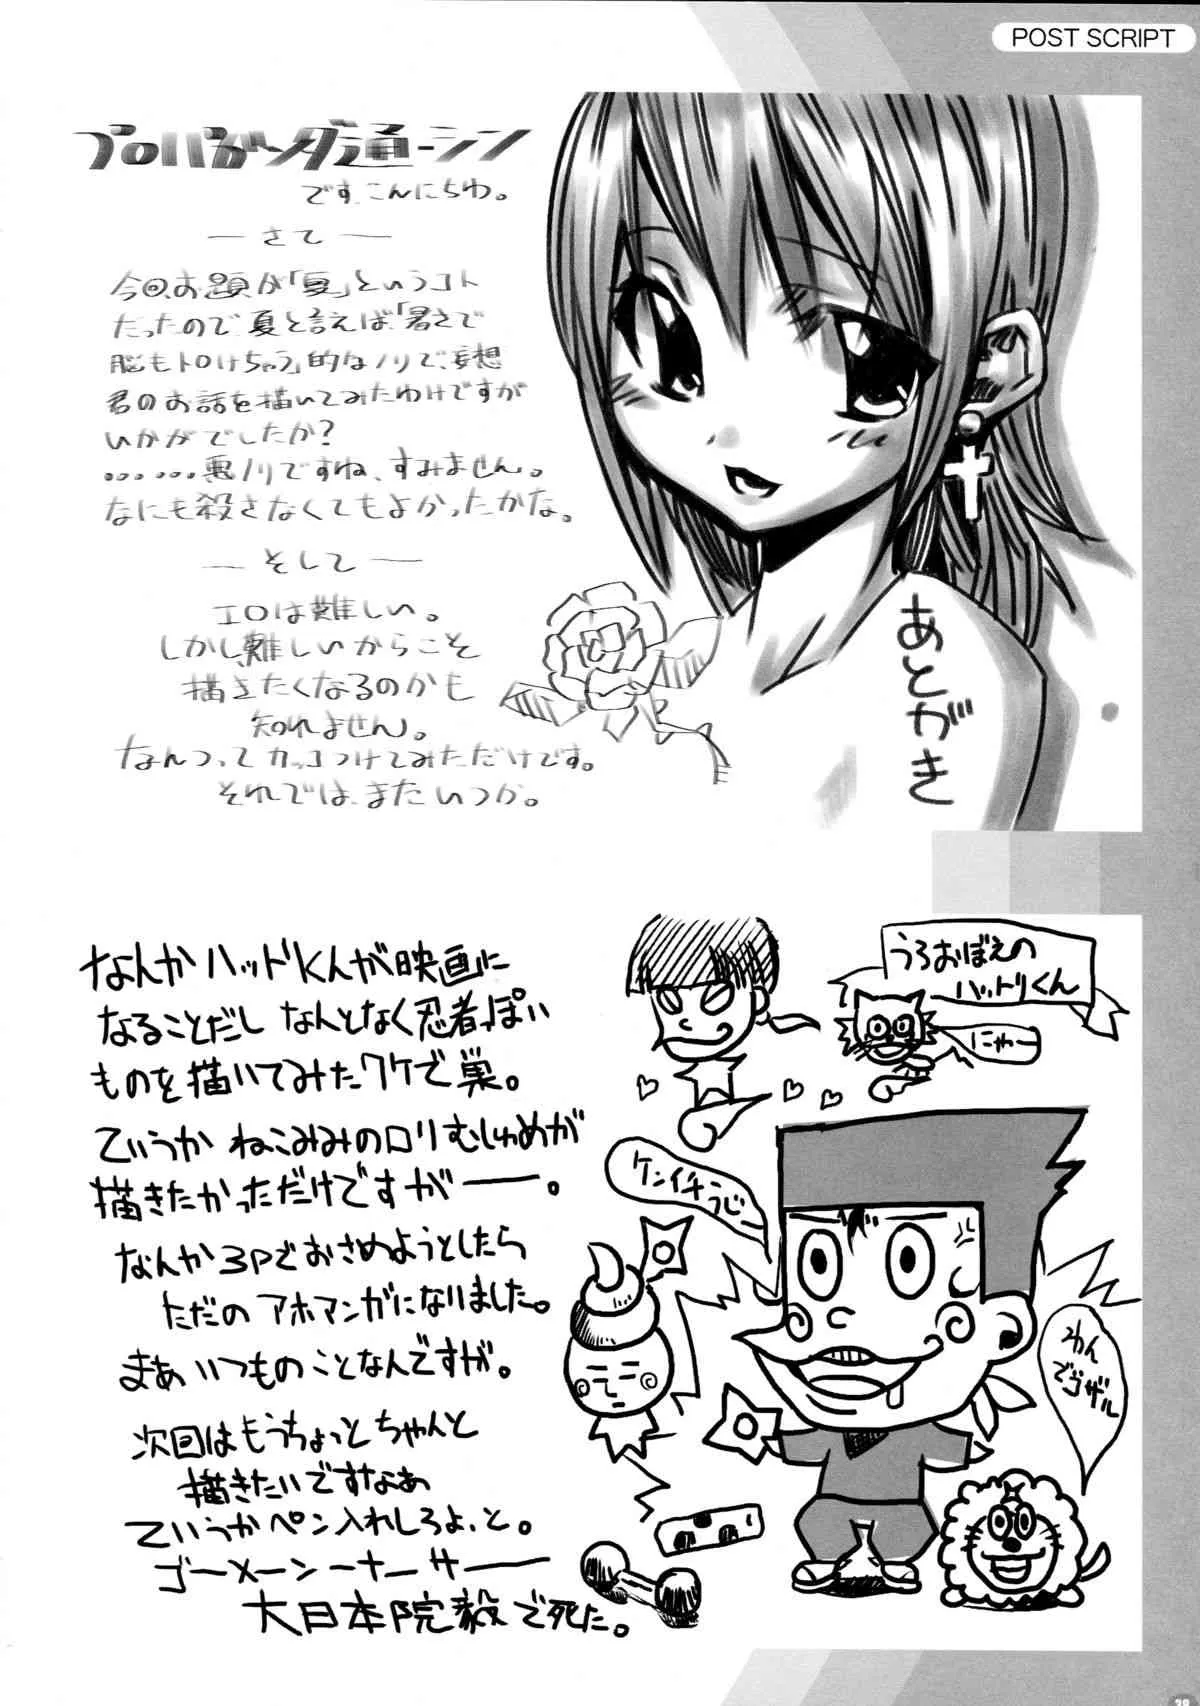 POST SCRIPT
プロパガンダ通ーシン
です、こんにちわ。
ーさてー
今回、お題が「夏」というコト
だったので夏と言えば、「暑さで
脳もトロけちゃう」的なノリで、妄想
君のお話を描いてみたわけですが
いかがでしたか?
………悪ノリですね、すみません。
なにも殺さなくてもよかったかな。
ーそしてー
エロは難しい。
しかし、難しいからこそ
描きたくなるのかも
知れません。
なんつってカッコつけてみただけです。
それでは、またいつか。
あとがき
なんかハットリくんが映画に
なることだし なんとなく忍者っぽい
ものを描いてみたワケで巣。
ていうか ねこみみのロリむしゅめが
描きたかっただけですがー。
なんか3Pでおさめようとしたら
ただの アホマンガになりました。
まあ いつものことなんですが。
次回はもうちょっとちゃんと
描きたいですなあ
ていうかペン入れしろよ、と。
ゴーメーンーナーサー
大日本院毅で死た。
うろおぼえの
ハットリくん
にゃー
ケンイチうじー
わん
でゴザル